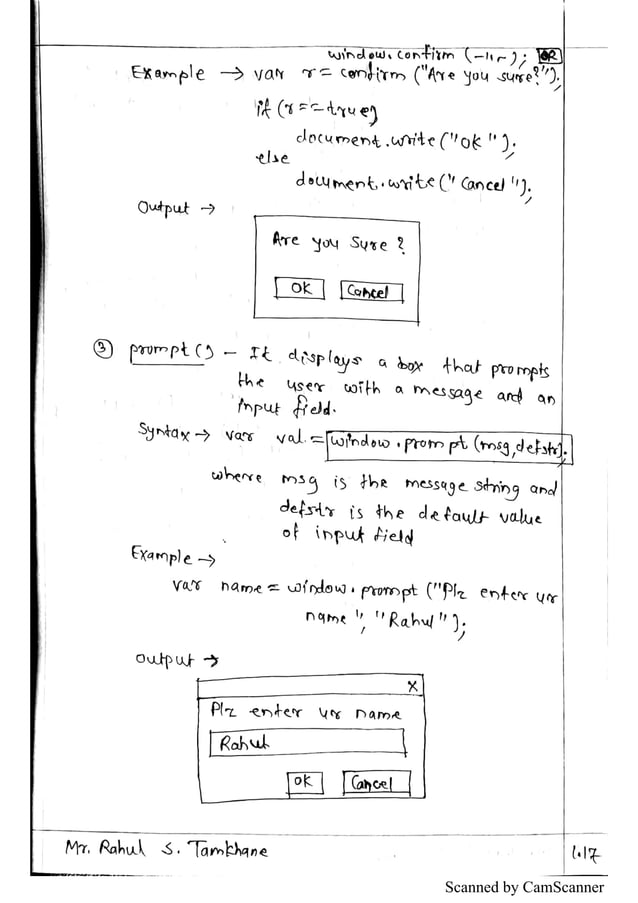 window.confirm (-11-); OR
Example → var r = confirm ("Are you sure?");
if (r == true)
document.write ("ok");
else
document.write ("Cancel");
Output →
Are you Sure ?
OK Cancel
③ prompt() - It displays a box that prompts
the user with a message and an
input field.
Syntax → var val = window.prompt (msg, defstr);
where msg is the message string and
defstr is the default value
of input field
Example →
var name = window.prompt ("Plz enter ur
name", "Rahul");
Output →
X
Plz enter ur name
Rahul
OK Cancel
Mr. Rahul S. Tamkhane
1.17
Scanned by CamScanner